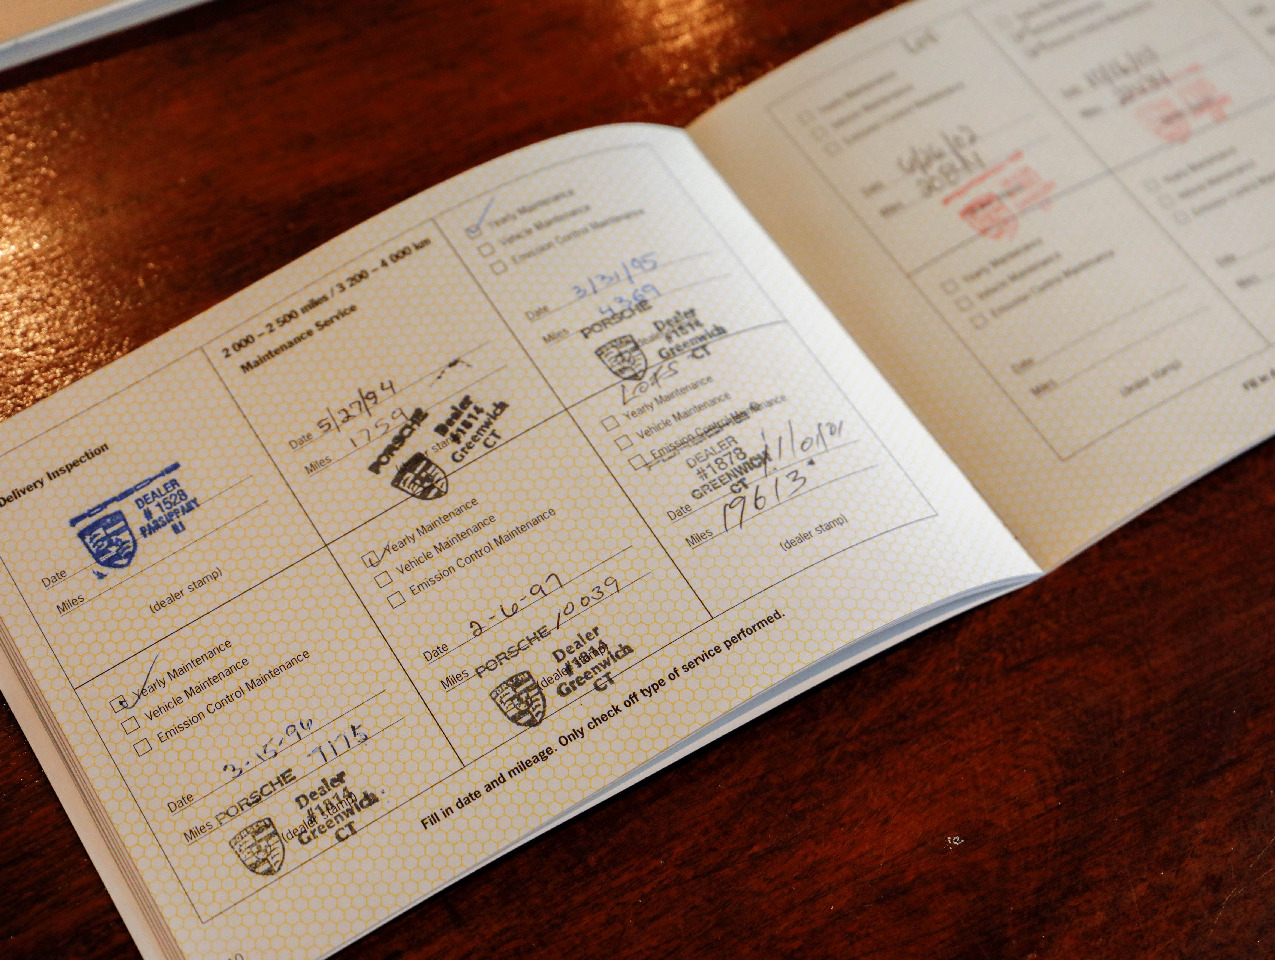 Delivery Inspection
DEALER
# 1528
PARSIPPANY
NJ
Date
Miles
(dealer stamp)
2 000 – 2 500 miles / 3 200 – 4 000 km
Maintenance Service
Date 5/27/94
Miles 1759
PORSCHE
Dealer
#1814
Greenwich
CT
Yearly Maintenance
Vehicle Maintenance
Emission Control Maintenance
Date 3/31/95
Miles 4369
PORSCHE
Dealer
#1814
Greenwich
CT
Yearly Maintenance
Vehicle Maintenance
Emission Control Maintenance
Date 3-15-96
Miles 7175
PORSCHE
(dealer stamp)
Dealer
#1814
Greenwich
CT
Yearly Maintenance
Vehicle Maintenance
Emission Control Maintenance
Date 2-6-97
Miles 10039
PORSCHE
Dealer
#1814
Greenwich
CT
LOFS
Yearly Maintenance
Vehicle Maintenance
Emission Control Maintenance
DEALER
#1878
GREENWICH
CT
Date 11/01/01
Miles 19613
(dealer stamp)
Fill in date and mileage. Only check off type of service performed.
Yearly Maintenance
Vehicle Maintenance
Emission Control Maintenance
Yearly Maintenance
Vehicle Maintenance
Emission Control Maintenance
Date
Miles
(dealer stamp)
Fill in